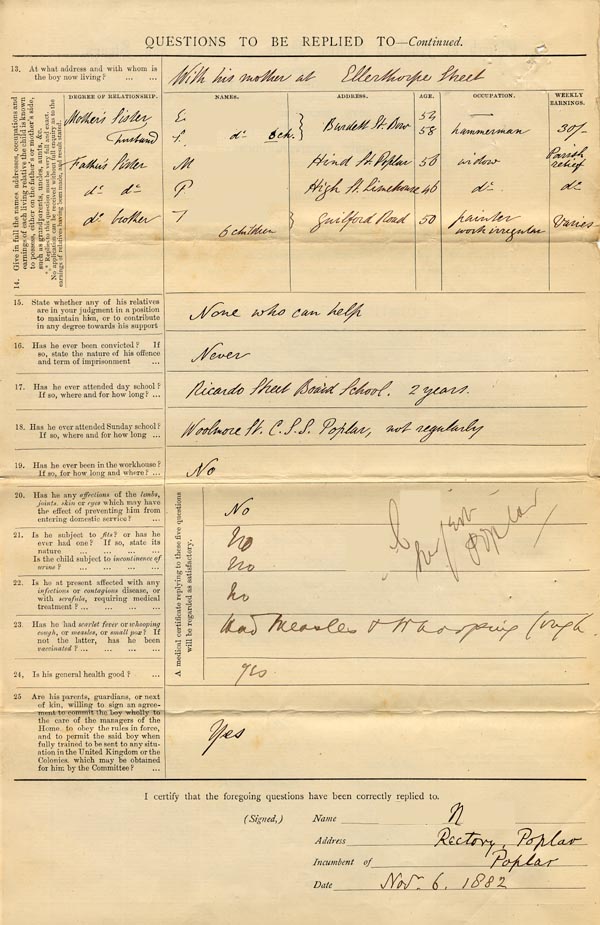 QUESTIONS TO BE REPLIED TO—Continued.
13. At what address and with whom is
the boy now living? ... ...
With his mother at Ellerthorpe Street
14. Give in full the names, addresses, occupations and
earnings of each living relative the child is known
to possess, either on the father's or mother's side,
such as grandparents, uncles, aunts, &c.
*** Replies to this question must be very full and exact.
No application can be received without full enquiry as to the
earnings of relatives having been made, and result stated.
DEGREE OF RELATIONSHIP. NAMES. ADDRESS. AGE. OCCUPATION. WEEKLY EARNINGS.
Mother's Sister E. 54 —
husband S. do 6 ch. Burdett St. Bow 58 hammerman 30/-
Father's Sister M Hind St. Poplar 56 widow Parish relief
do do P High St. Limehouse 46 do do
do brother T
6 children Guilford Road 50 painter work irregular Varies
15. State whether any of his relatives
are in your judgment in a position
to maintain him, or to contribute
in any degree towards his support
None who can help
16. Has he ever been convicted? If
so, state the nature of his offence
and term of imprisonment ...
Never
17. Has he ever attended day school?
If so, where and for how long? ...
Ricardo Street Board School. 2 years.
18. Has he ever attended Sunday school?
If so, where and for how long ...
Woolmore St. C.S.S. Poplar, not regularly
19. Has he ever been in the workhouse?
If so, for how long and where? ...
No
A medical certificate replying to these five questions
will be regarded as satisfactory.
20. Has he any affections of the limbs,
joints, skin or eyes which may have
the effect of preventing him from
entering domestic service? ...
No
21. Is he subject to fits? or has he
ever had one? If so, state its
nature ... ... ... ...
Is the child subject to incontinence of
urine? ... ... ... ...
No
No
22. Is he at present affected with any
infectious or contagious disease, or
with scrofula, requiring medical
treatment? ... ... ... ...
No
23. Has he had scarlet fever or whooping
cough, or measles, or small pox? If
not the latter, has he been
vaccinated? ... ... ... ...
Had Measles & Whooping Cough.
24, Is his general health good? ...
Yes
Surgeon
Poplar
25 Are his parents, guardians, or next
of kin, willing to sign an agree-
ment to commit the boy wholly to
the care of the managers of the
Home, to obey the rules in force,
and to permit the said boy when
fully trained to be sent to any situ-
ation in the United Kingdom or the
Colonies, which may be obtained
for him by the Committee? ...
Yes
I certify that the foregoing questions have been correctly replied to.
(Signed,) Name N
Address Rectory, Poplar
Incumbent of Poplar
Date Nov. 6. 1882